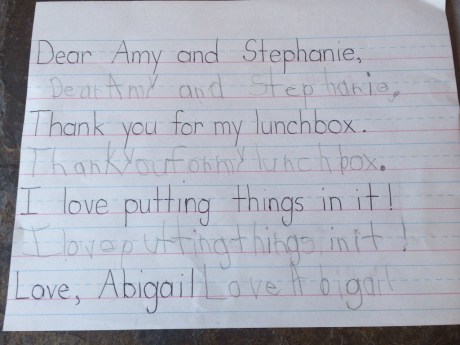 Dear Amy and Stephanie,
Dear Amy and Stephanie,
Thank you for my lunchbox.
Thank You for my lunchbox.
I love putting things in it!
I love putting things in it!
Love, Abigail Love Abigail